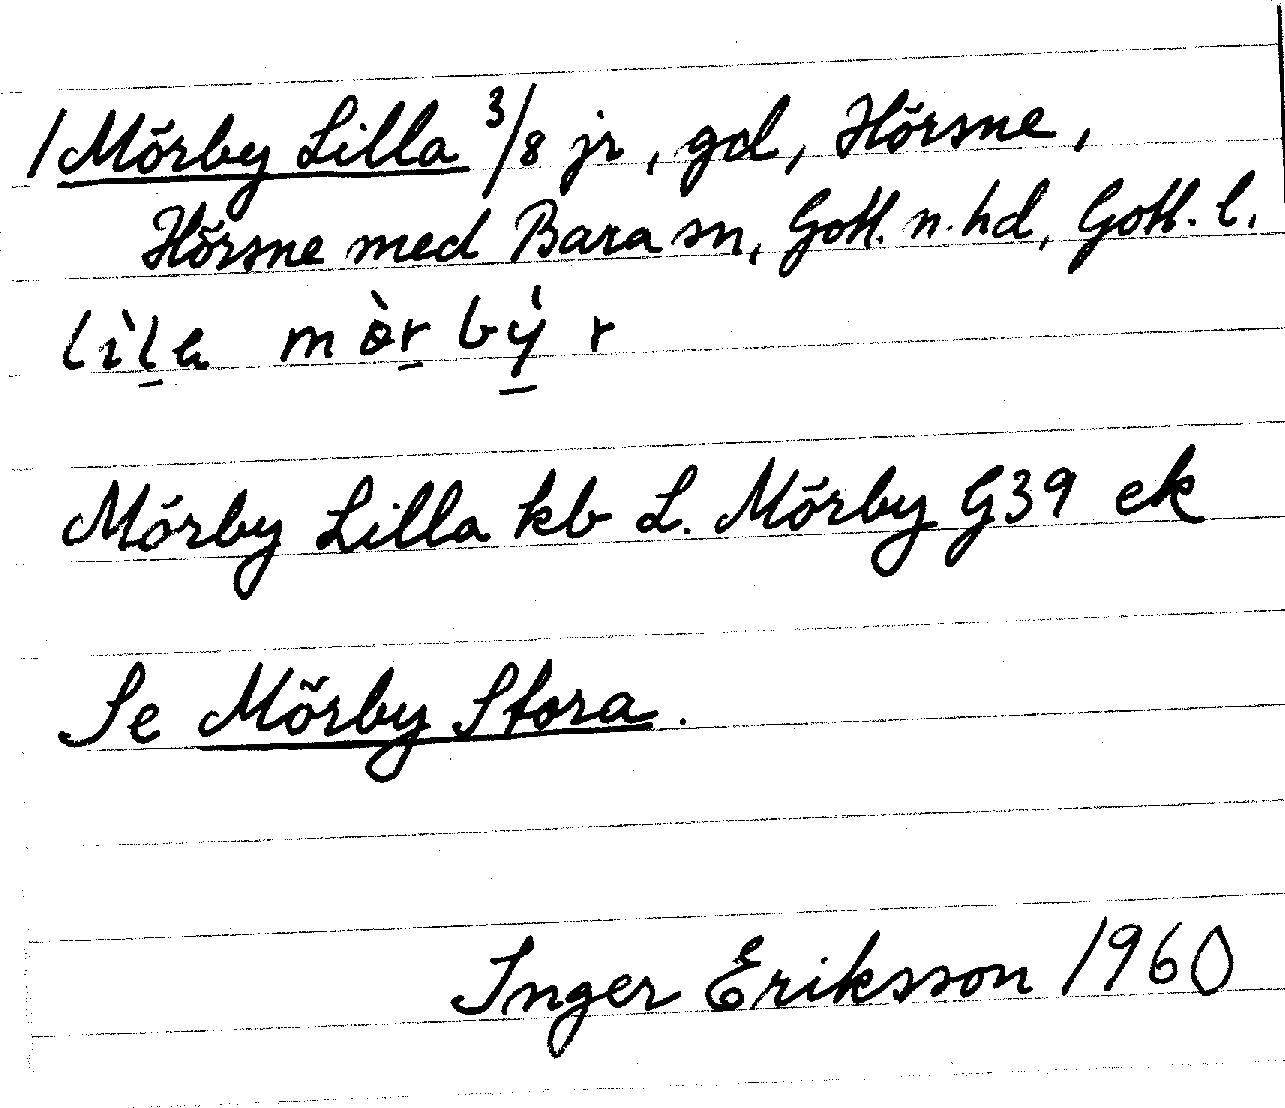 / Mörby Lilla 3/8 jr, gd, Hörsne,
Hörsne med Bara sn, Gotl. n. hd, Gotl. l.
lìla mòr bý r
Mörby Lilla kb L. Mörby G39 ek
Se Mörby Stora.
Inger Eriksson 1960